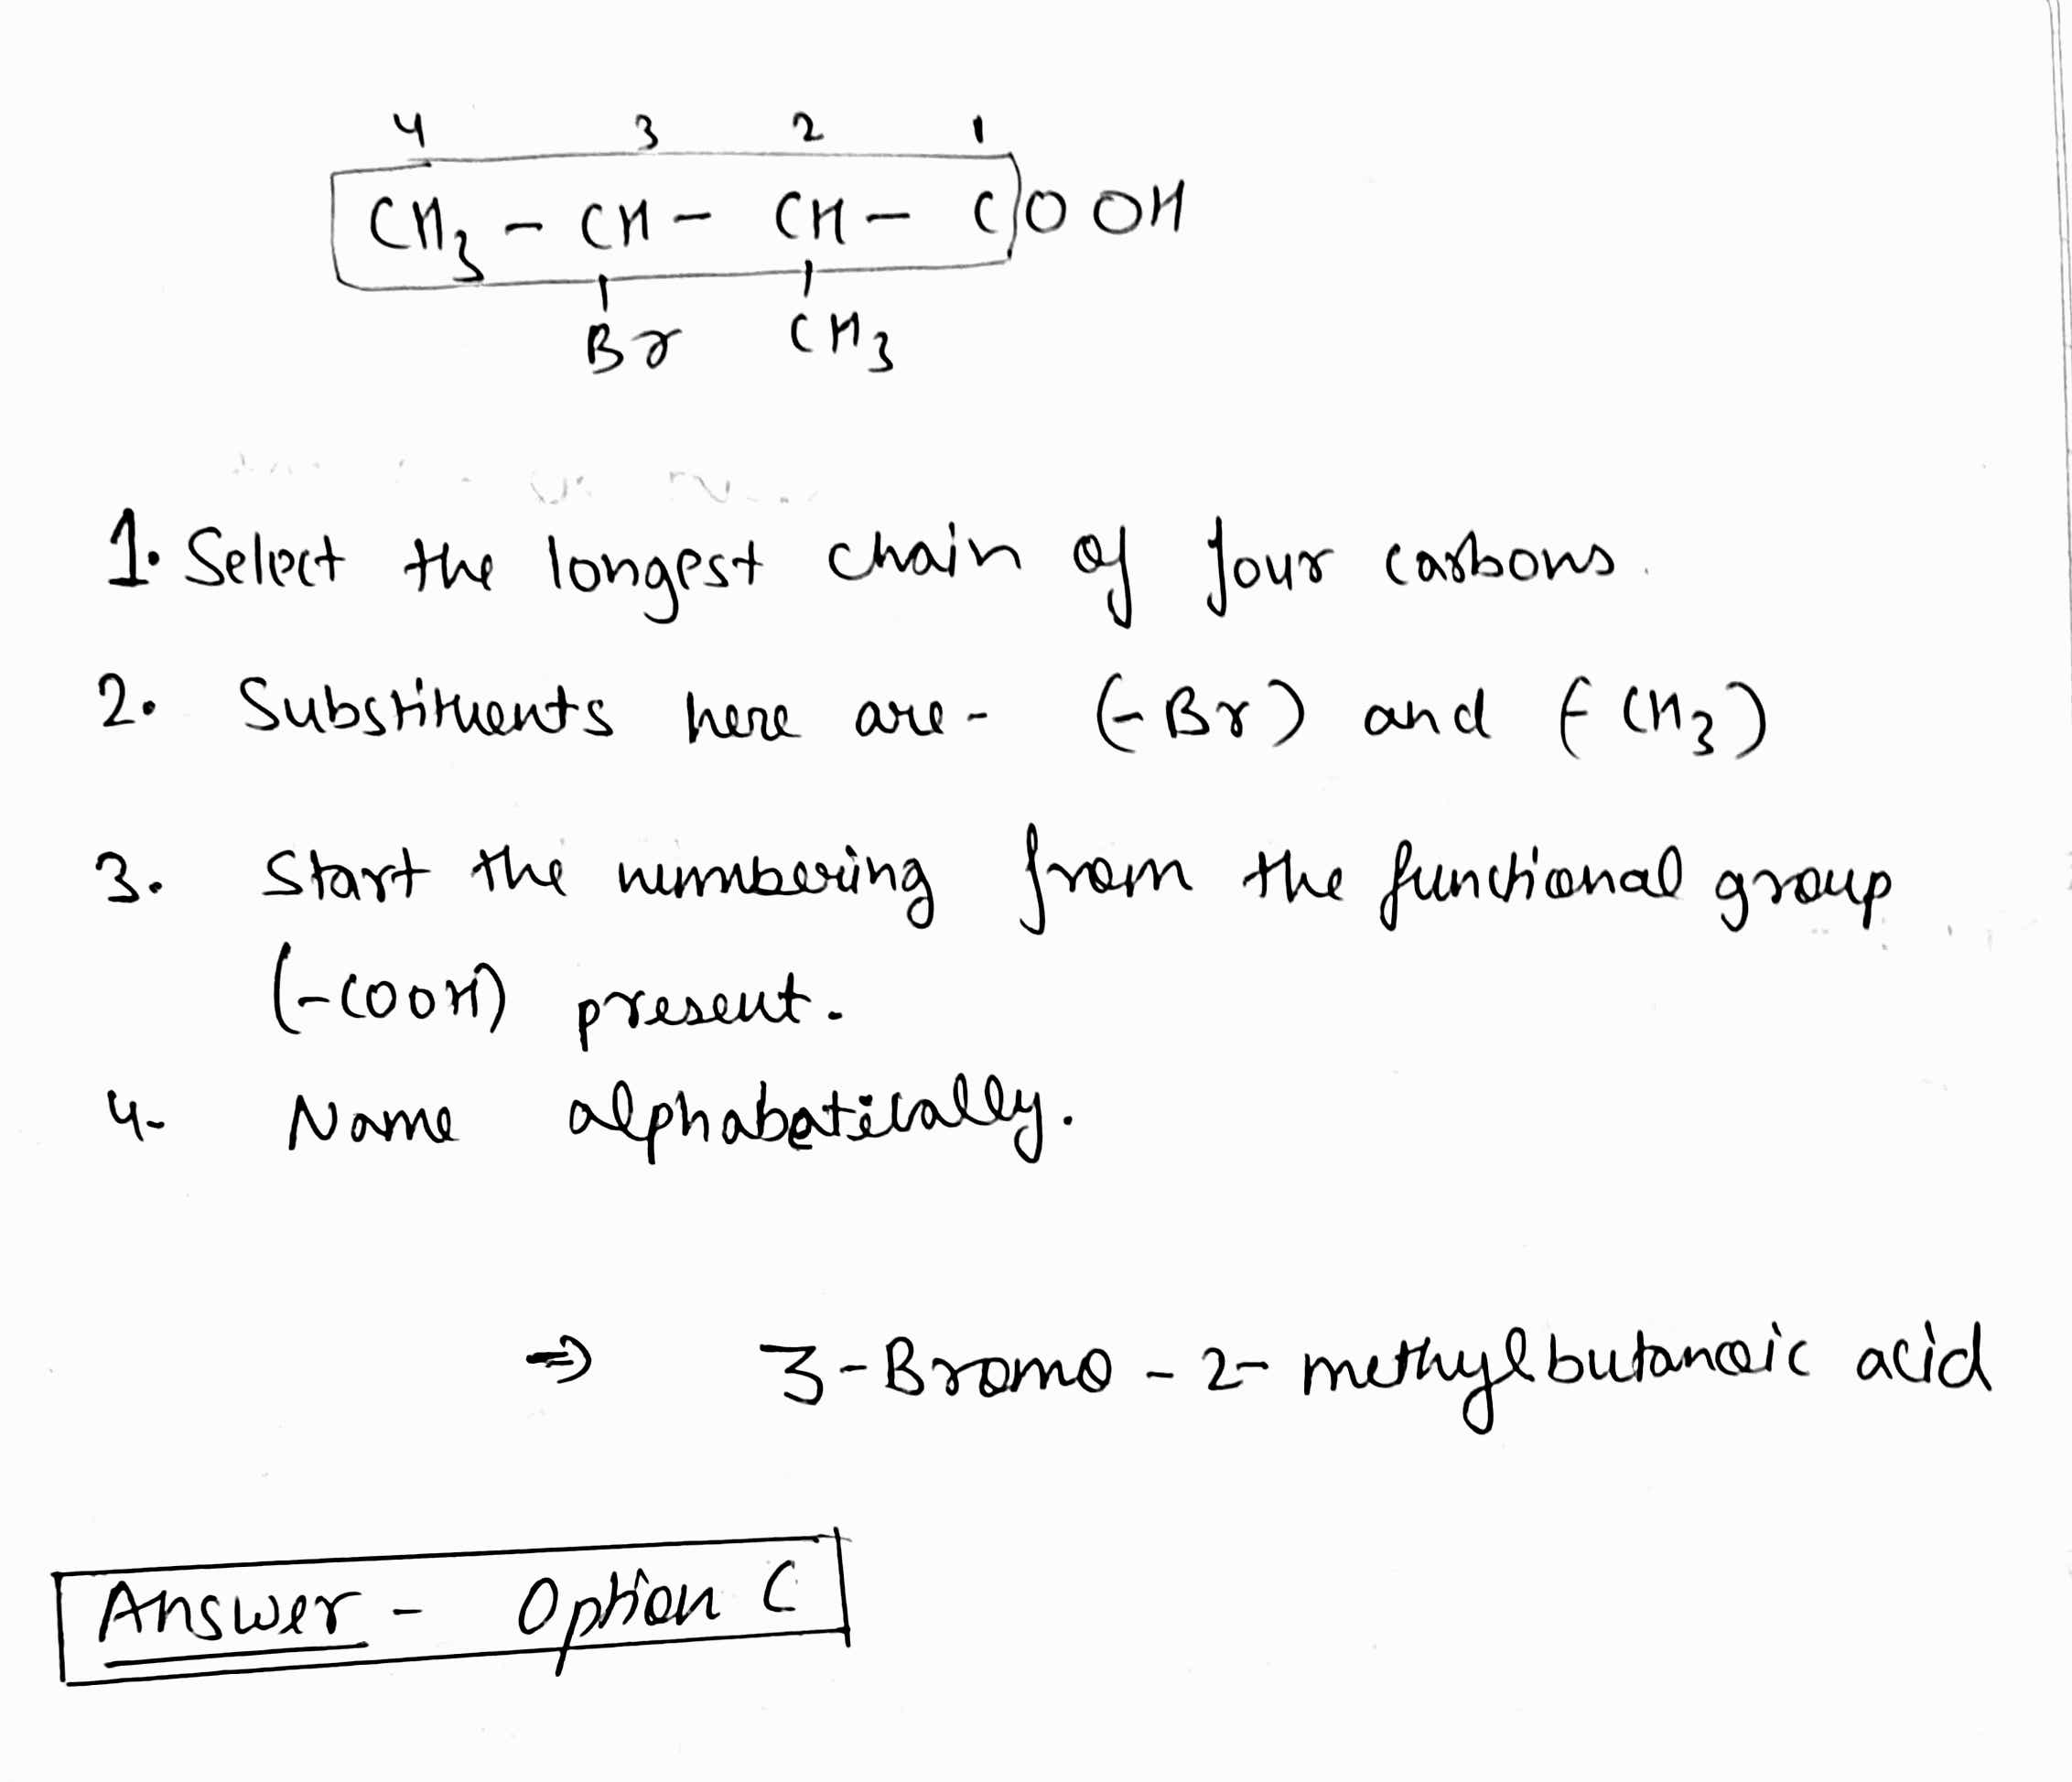 4 3 2 1
CH₃ - CH - CH - COOH
Br CH₃
1. Select the longest chain of four carbons.
2. Substituents here are - (-Br) and (-CH₃)
3. Start the numbering from the functional group
(-COOH) present.
4- Name alphabatically.
⇒ 3-Bromo-2-methylbutanoic acid
Answer - Option C